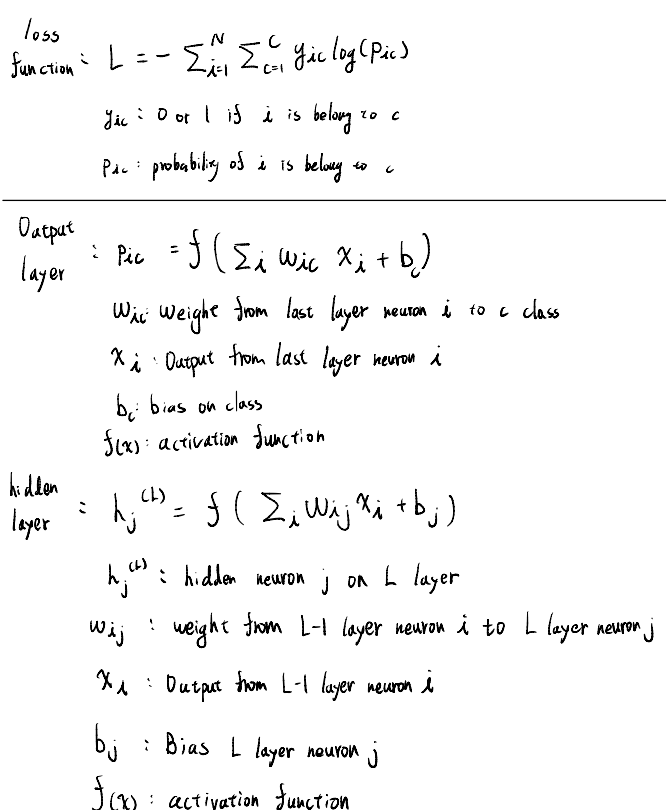 loss
function : L = - ∑_{i=1}^{N} ∑_{c=1}^{C} y_{ic} log(p_{ic})
y_{ic} : 0 or 1 if i is belong to c
p_{ic} : probability of i is belong to c
Output
layer : p_{ic} = f ( ∑_i w_{ic} x_i + b_c )
w_{ic} : weight from last layer neuron i to c class
x_i : Output from last layer neuron i
b_c : bias on class
f(x) : activation function
hidden
layer : h_j^{(L)} = f ( ∑_i w_{ij} x_i + b_j )
h_j^{(L)} : hidden neuron j on L layer
w_{ij} : weight from L-1 layer neuron i to L layer neuron j
x_i : Output from L-1 layer neuron i
b_j : Bias L layer neuron j
f(x) : activation function